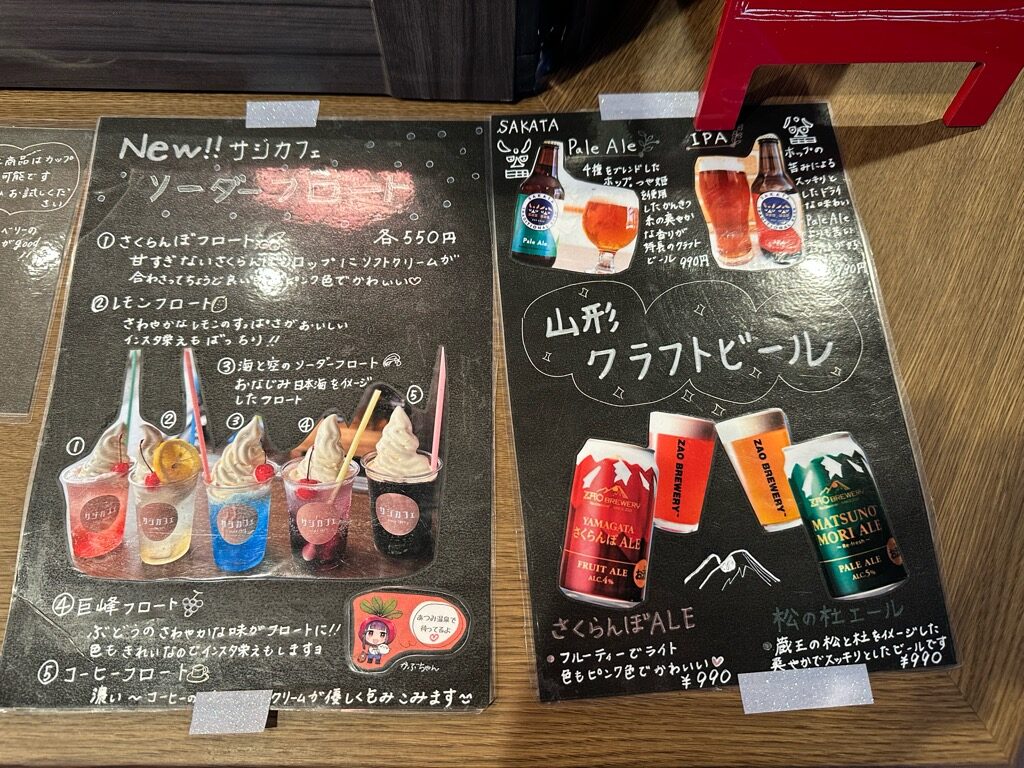 商品はカップ
可能です
お試しくだ
さい
ベリーの
がgood
New!! サジカフェ
ソーダーフロート
①さくらんぼフロート
各550円
甘すぎないさくらんぼシロップにソフトクリームが
合わさってちょうど良い
ピンク色でかわいい♡
②レモンフロート
さわやかなレモンのすっぱさがおいしい
インスタ栄えもばっちり!!
③海と空のソーダーフロート
おなじみ日本海をイメージ
したフロート
① ② ③ ④ ⑤
サジカフェ
サジカフェ
サジカフェ
サジカフェ
サジカフェ
④巨峰フロート
ぶどうのさわやかな味がフロートに!!
色もきれいなのでインスタ栄えもしますヨ
⑤コーヒーフロート
濃い〜コーヒーの
クリームが優しく包みこみます
あつみ温泉で
待ってるよ
♡
かぶちゃん
SAKATA
Pale Ale
4種をブレンドした
ホップ、つや姫
を使用
したかんきつ
系の爽やか
な香りが
特長のクラフト
ビール 990円
Pale Ale
IPA
ホップの
苦みによる
スッキリと
したドライ
な味わい
Pale Ale
990円
山形
クラフトビール
ZAO BREWERY
ZAO BREWERY
ZAO BREWERY
YAMAGATA
さくらんぼALE
FRUIT ALE
ALC.4%
ZAO BREWERY
MATSUNO
MORI ALE
~Re-fresh~
PALE ALE
ALC.5%
さくらんぼALE
フルーティーでライト
色もピンク色でかわいい♡
¥990
松の杜エール
蔵王の松と杜をイメージした
爽やかでスッキリとしたビールです
¥990